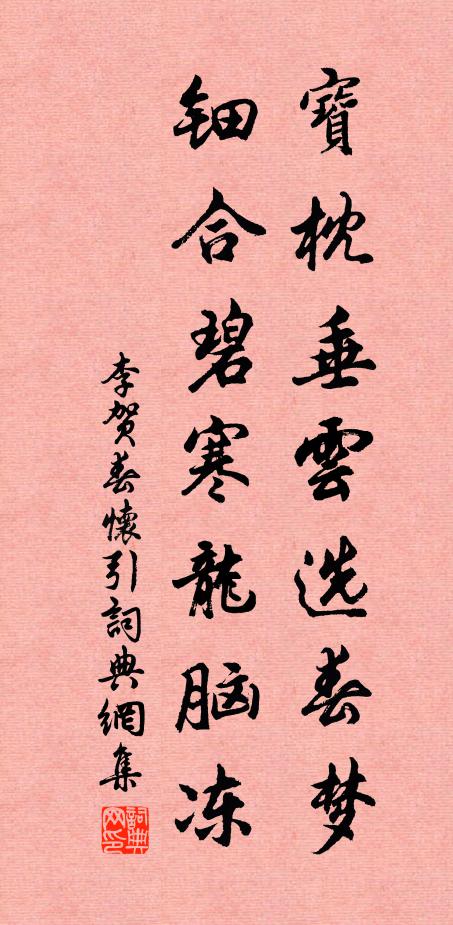 寶枕垂雲选春梦
钿合碧寒龍脑冻
李贺春懷引詞典網集
詞典
网印